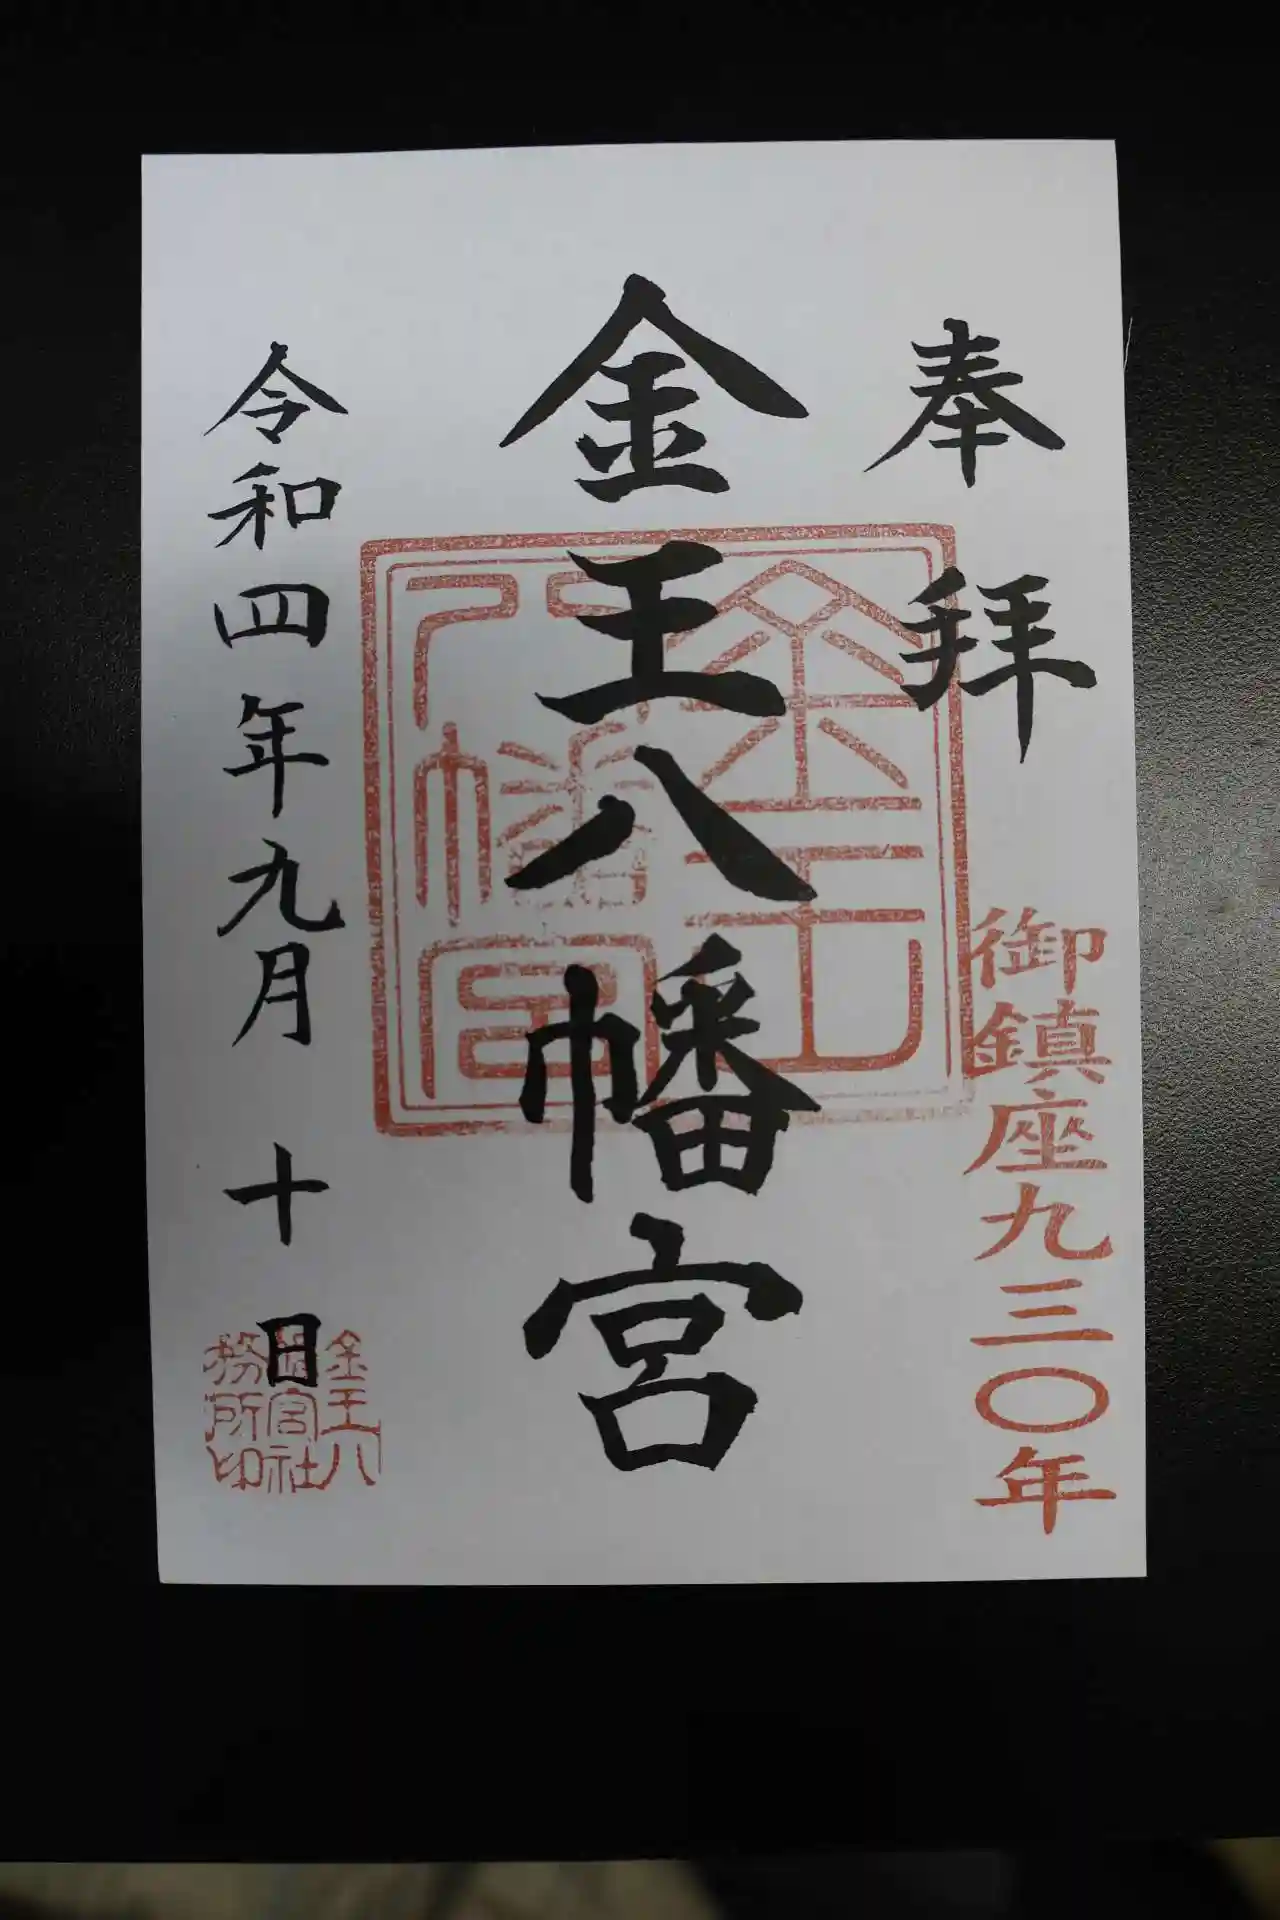 奉拝
御鎮座九三〇年
金王八幡宮
金王八幡宮
令和四年九月十日
金王八
幡宮社
務所印